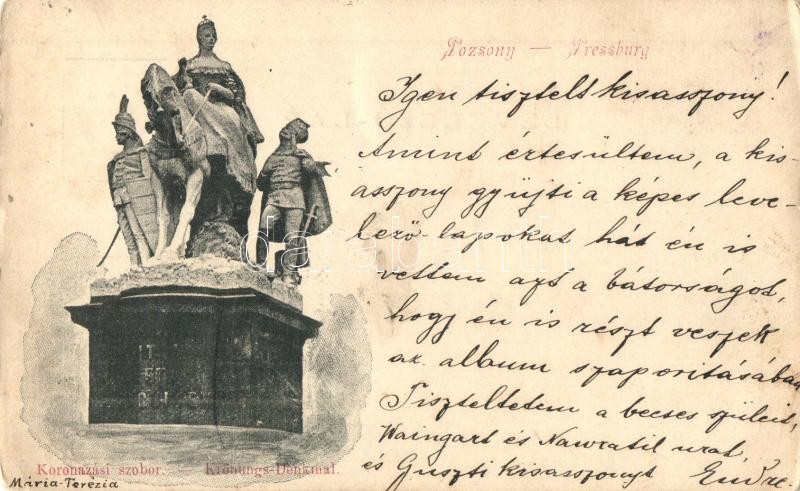 Pozsony — Pressburg
Igen tisztelt kisasszony!
Amint értesültem, a kis-
asszony gyűjti a képes leve-
lező-lapokat hát én is
vettem azt a bátorságot,
hogy én is részt veszek
az album szaporításában
Tiszteltetem a becses szüleit,
Waingart és Nawratil urat,
és Guszti kisasszonyt Endre
Koronázási szobor. — Krönungs-Denkmal.
Mária-Terézia
darabanth